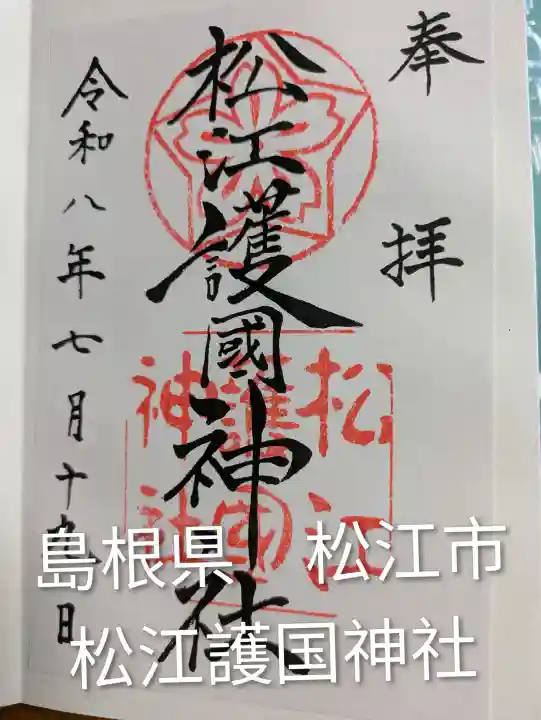 奉拝
松江護國神社
令和八年七月十九日
松江
護國
神社
島根県　松江市
松江護国神社